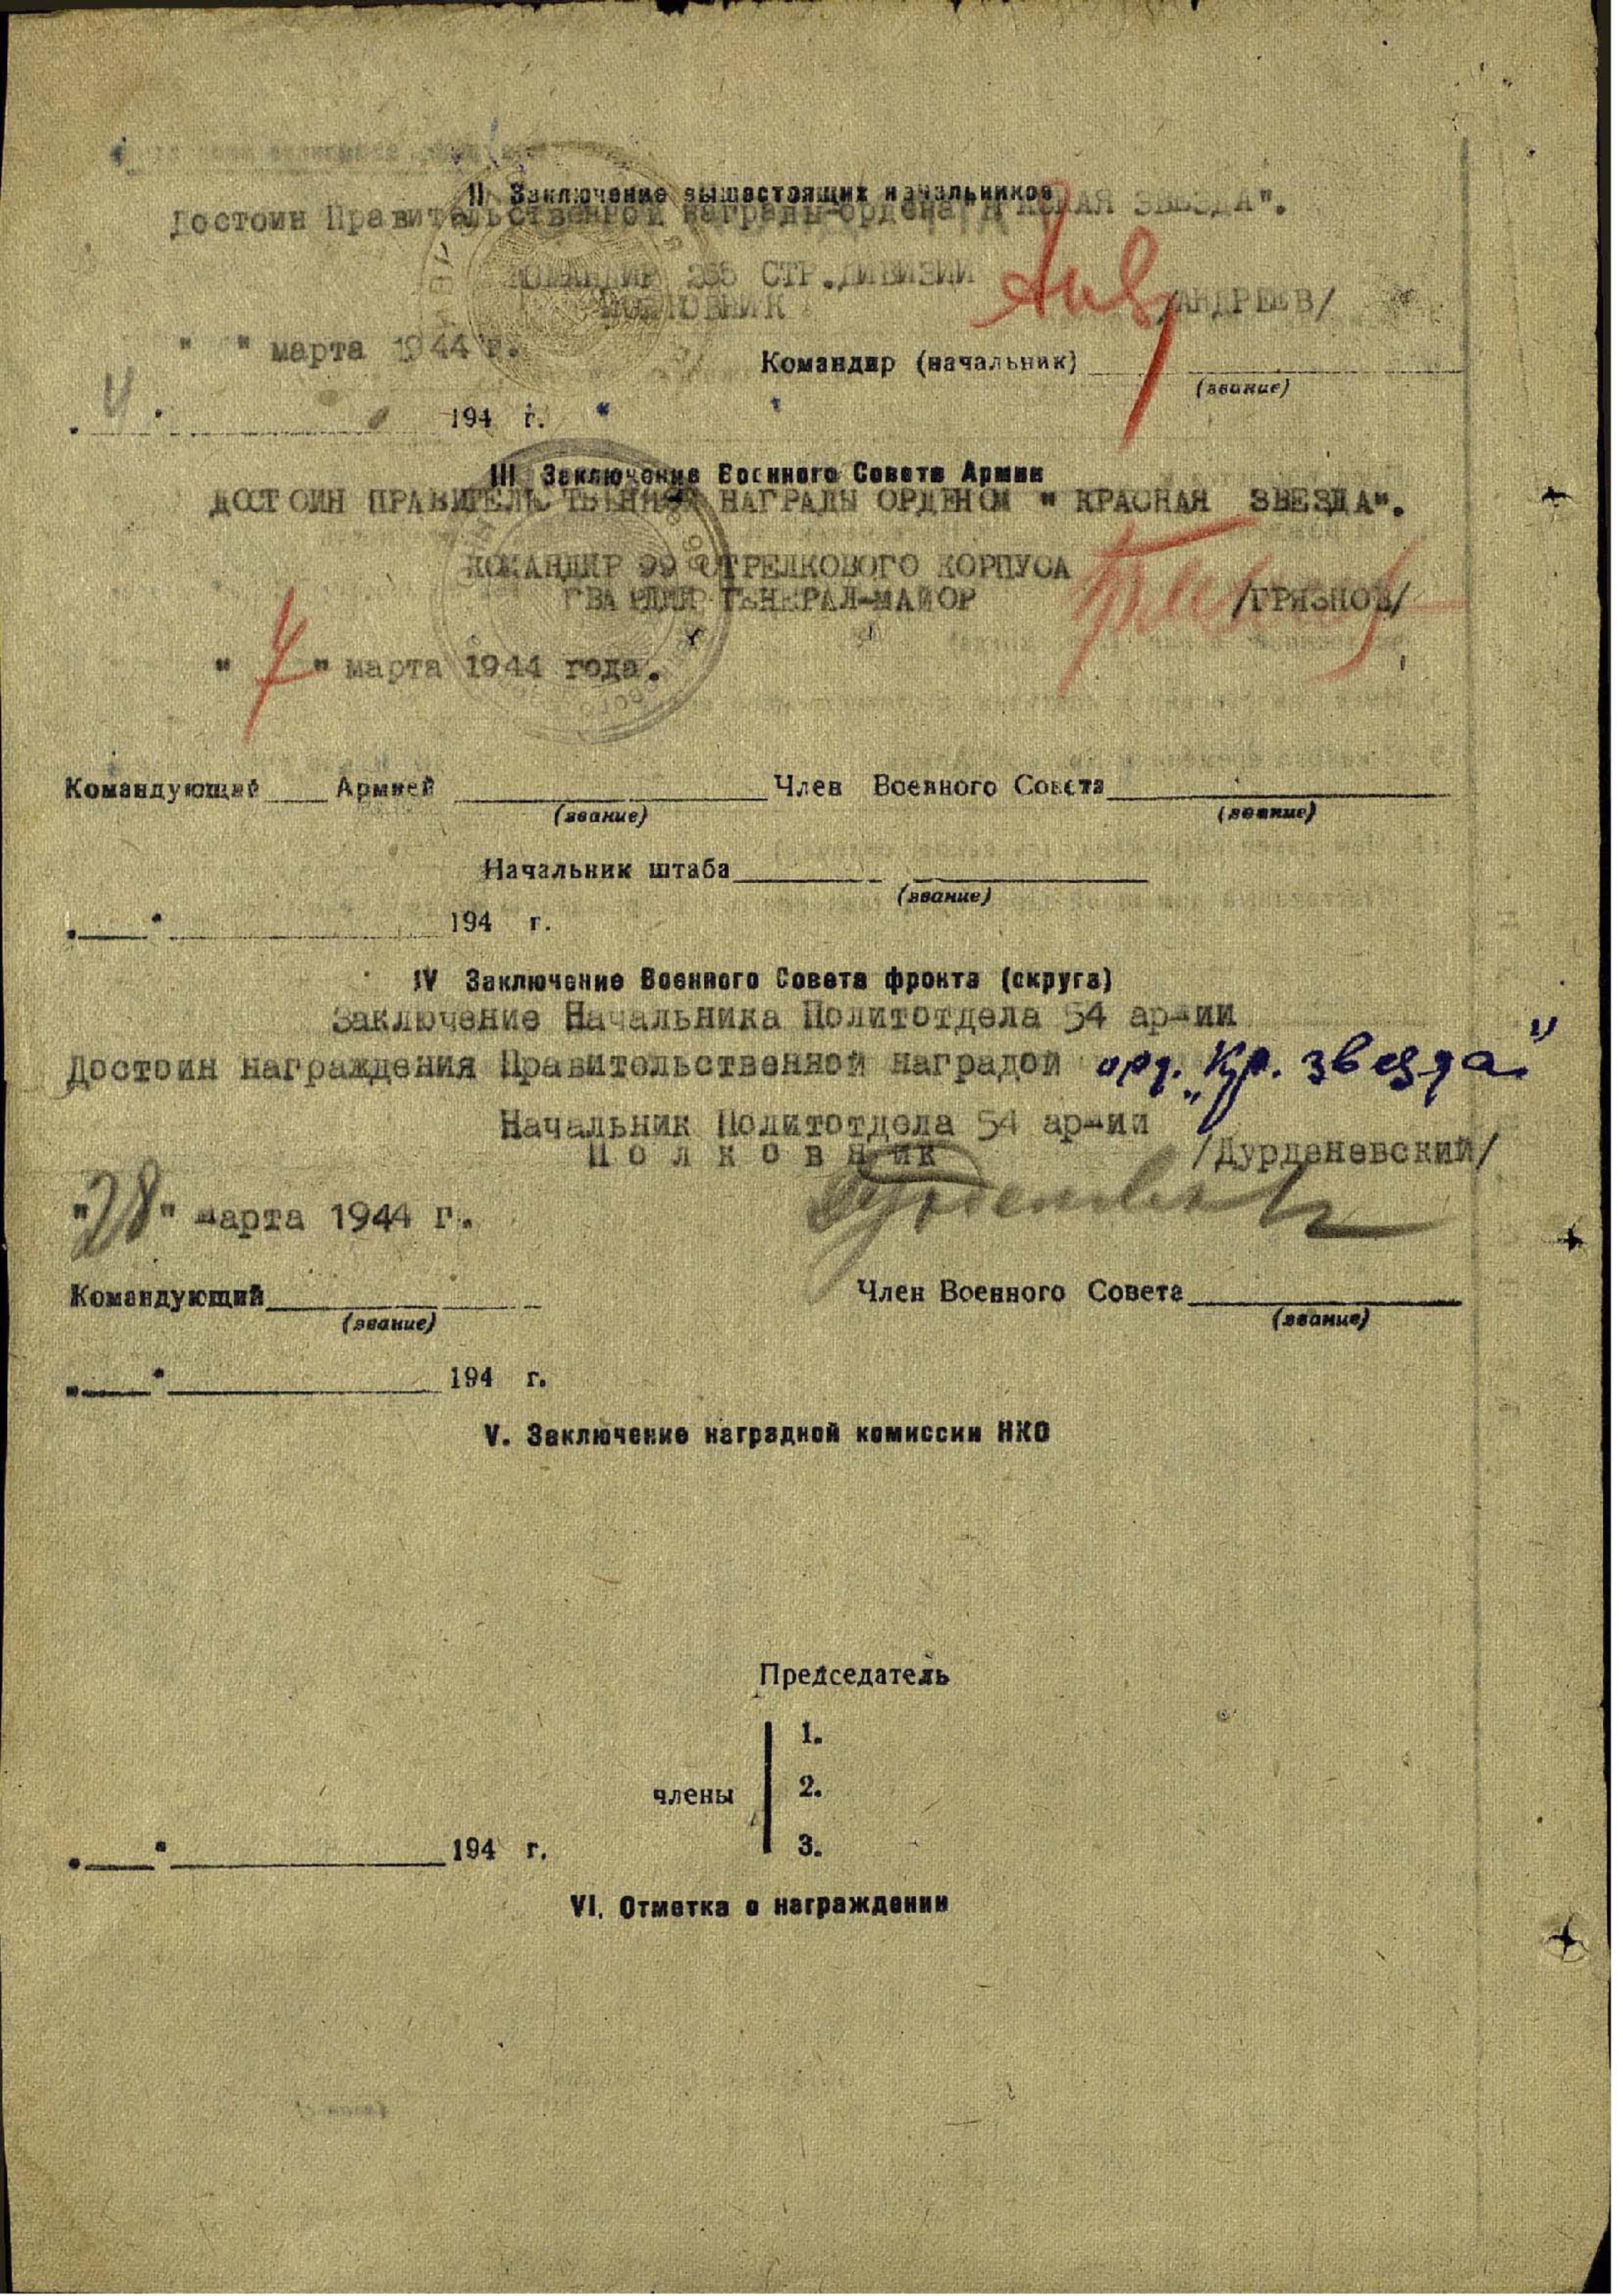 II Заключение вышестоящих начальников
Достоин Правительственной награды-ордена " ЗВЕЗДА".
КОМАНДИР СТР.ДИВИЗИИ
ПОЛКОВНИК /АНДРЕЕВ/
" " марта 1944 г.
Командир (начальник)
(звание)
194 г.
III Заключение Военного Совета Армии
ДОСТОИН ПРАВИТЕЛЬСТВЕННОЙ НАГРАДЫ ОРДЕНОМ " КРАСНАЯ ЗВЕЗДА".
КОМАНДИР 99 СТРЕЛКОВОГО КОРПУСА
ГВАРДИИ ГЕНЕРАЛ-МАЙОР /ГРЯЗНОВ/
" 7 " марта 1944 года.
Командующий Армией Член Военного Совета
(звание) (звание)
Начальник штаба
(звание)
" " 194 г.
IV Заключение Военного Совета фронта (округа)
Заключение Начальника Политотдела 54 армии
Достоин награждения Правительственной наградой орд. „Кр. звезда"
Начальник Политотдела 54 армии
Полковник /Дурденевский/
"28" марта 1944 г.
Командующий Член Военного Совета
(звание) (звание)
" " 194 г.
V. Заключение наградной комиссии НКО
Председатель
1.
члены 2.
3.
" " 194 г.
VI. Отметка о награждении